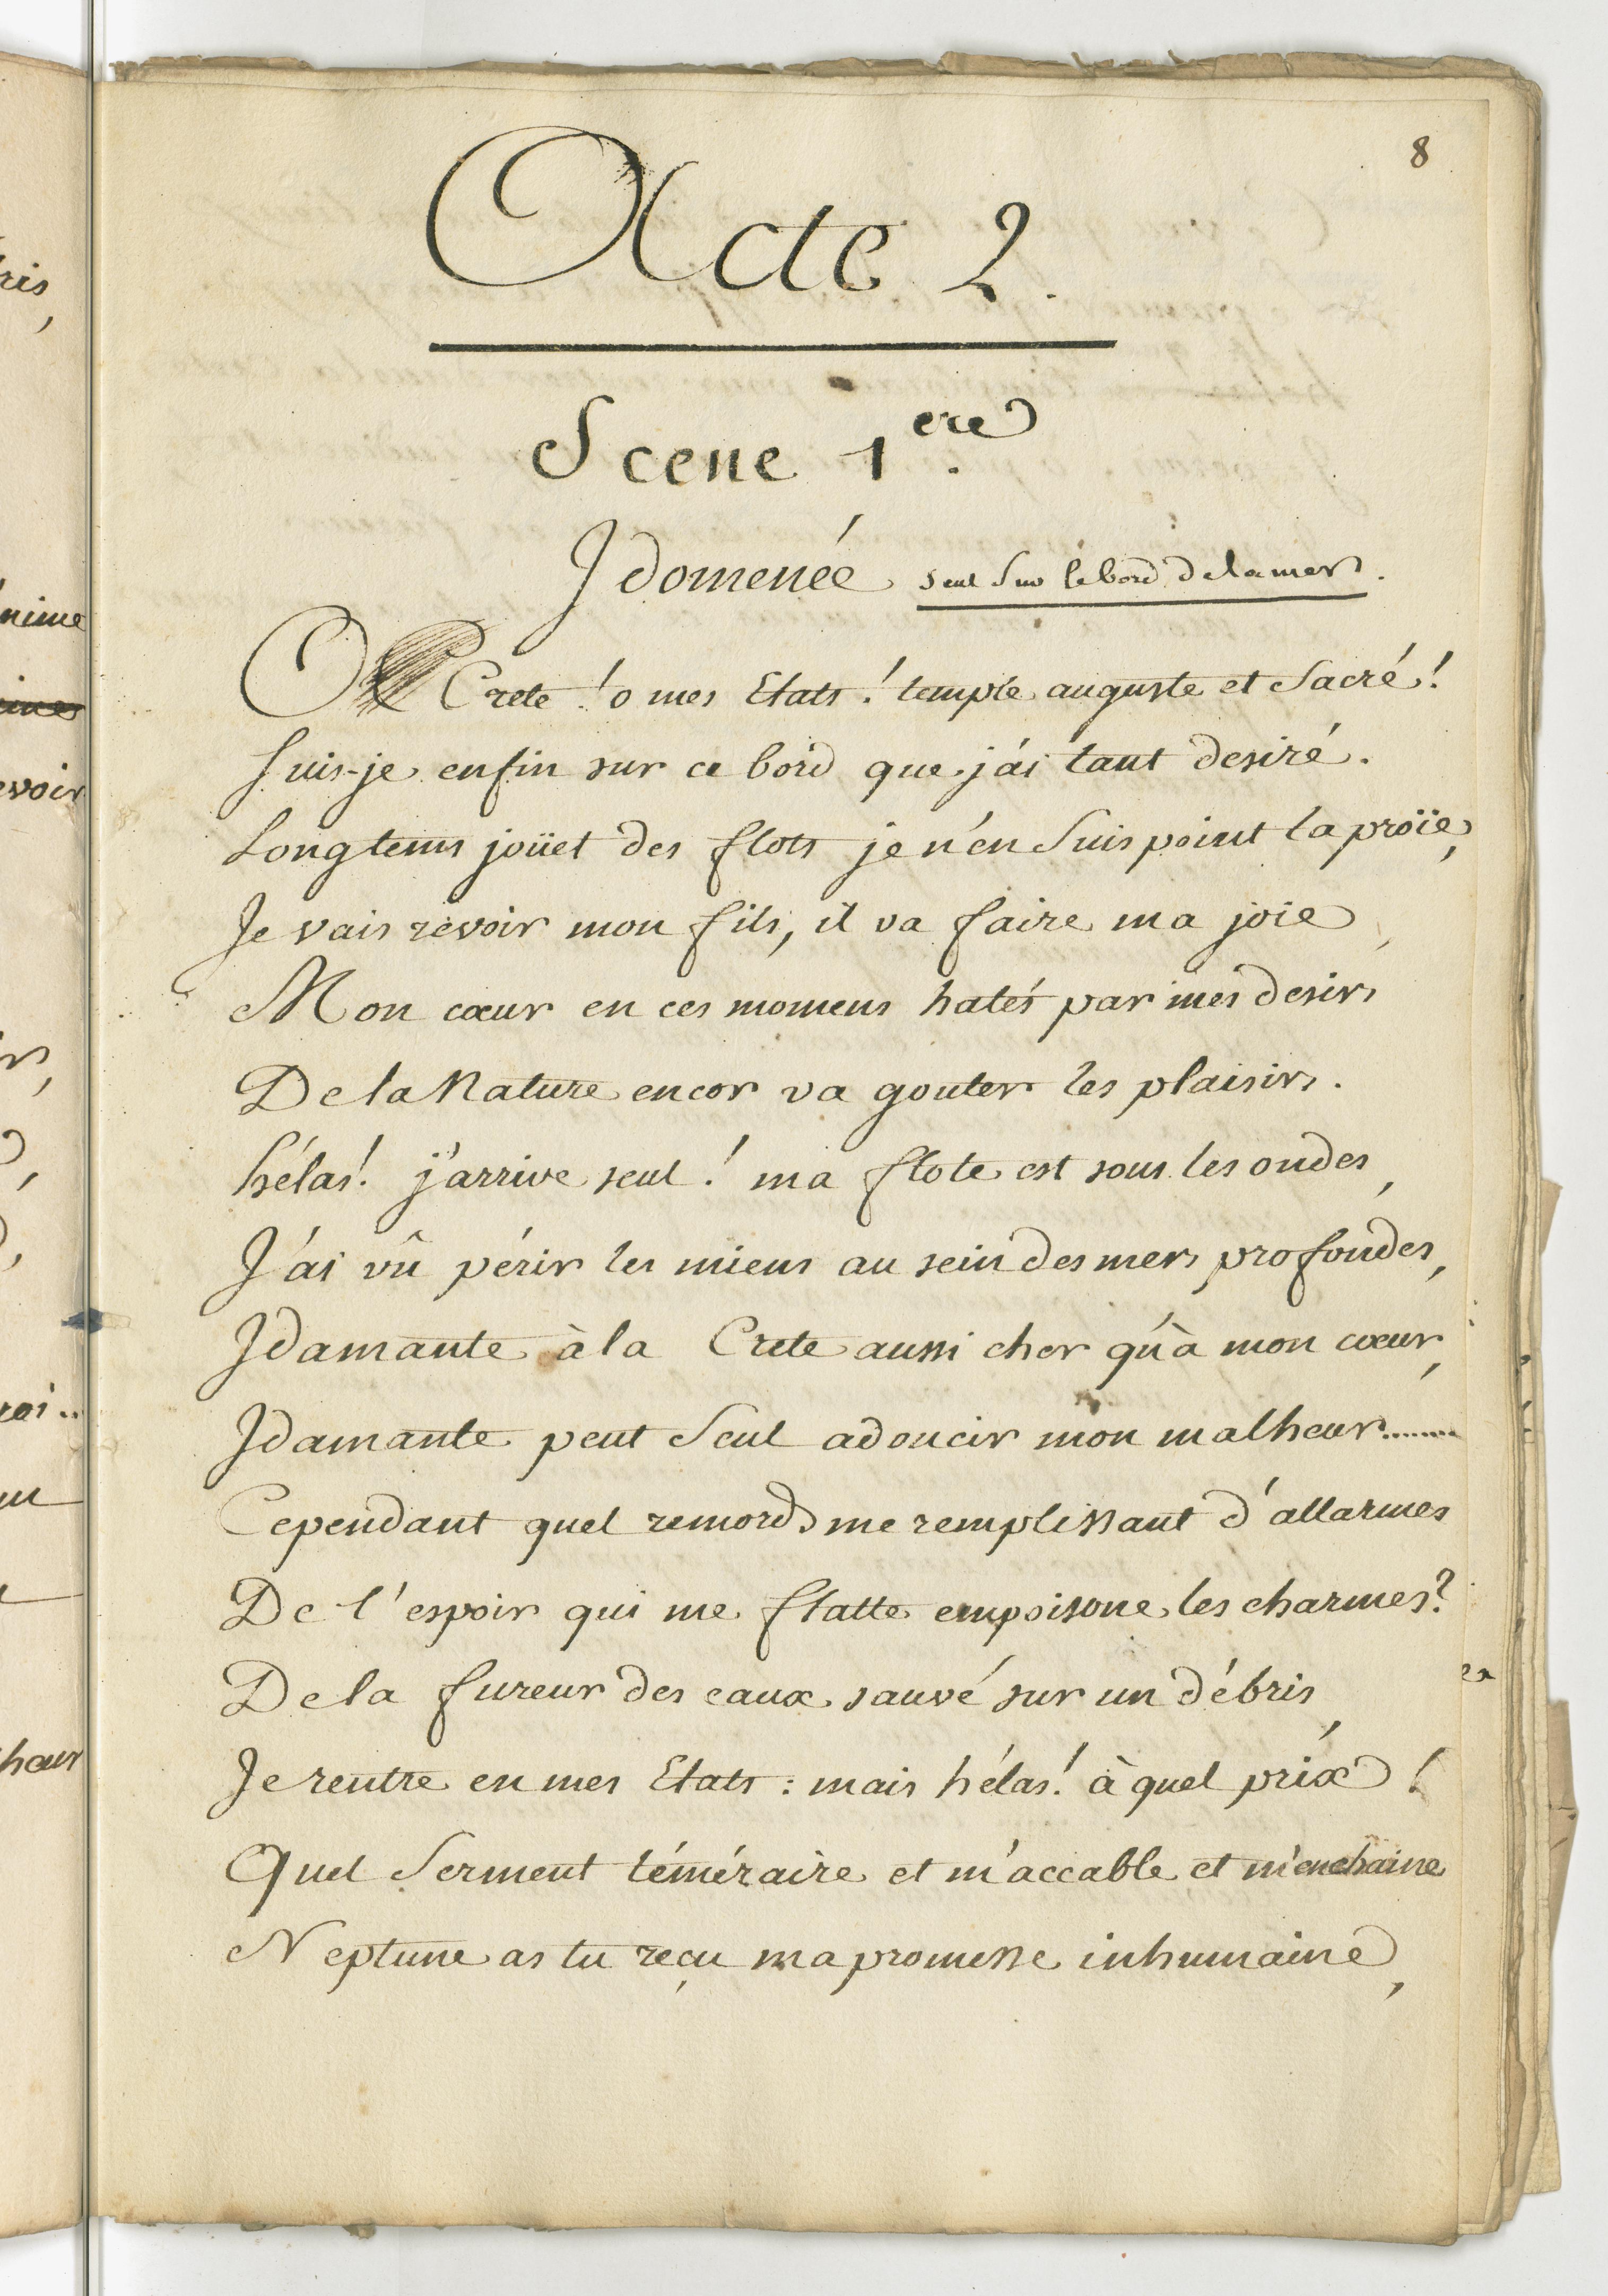 8
Acte 2.
Scene 1.ere
Idomenée seul sur le bord de la mer.
O Crete! o mes Etats! temple auguste et Sacré!
Suis-je enfin sur ce bord que j'ai tant desiré.
Longtems joüet des flots je n'en Suis point la proïe,
Je vais revoir mon fils, il va faire ma joie,
Mon cœur en ces momens hatés par mes desirs
De la Nature encor va gouter les plaisirs.
hélas! j'arrive seul! ma flote est sous les ondes,
J'ai vû périr les miens au sein des mers profondes,
Idamante à la Crete aussi cher qu'à mon cœur,
Idamante peut Seul adoucir mon malheur.......
Cependant quel remords me remplissant d'allarmes
De l'espoir qui me flatte empoisone les charmes?
De la fureur des eaux sauvé sur un débris,
Je rentre en mes Etats: mais hélas! à quel prix!
Quel Serment téméraire et m'accable et m'enchaine
Neptune as tu reçu ma promesse inhumaine,